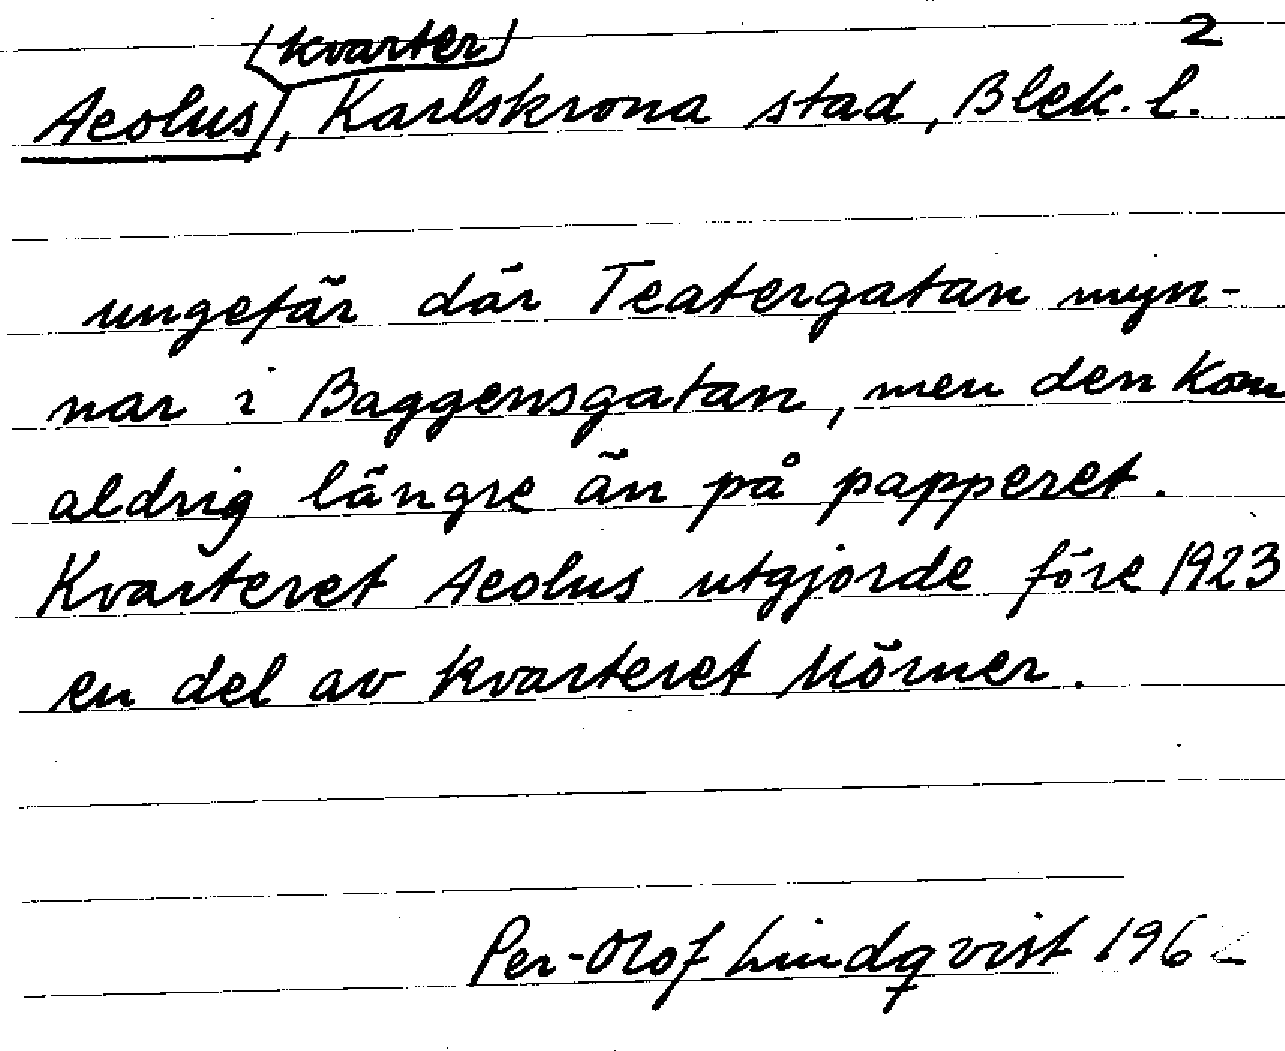 2
(kvarter)
Aeolus, Karlskrona stad, Blek. l.
ungefär där Teatergatan myn-
nar i Baggensgatan, men den kom
aldrig längre än på papperet.
Kvarteret Aeolus utgjorde före 1923
en del av kvarteret Mörner.
Per-Olof Lindqvist 1962